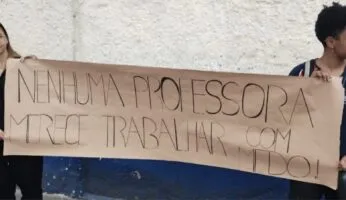 NENHUMA PROFESSORA
MERECE TRABALHAR COM
MEDO!